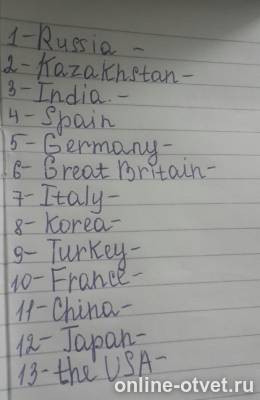 1-Russia -
2-Kazakhstan-
3-India.-
4-Spain
5-Germany-
6-Great Britain-
7-Italy-
8-Korea-
9-Turkey-
10-France-
11-China-
12-Japan-
13-the USA-
online-otvet.ru